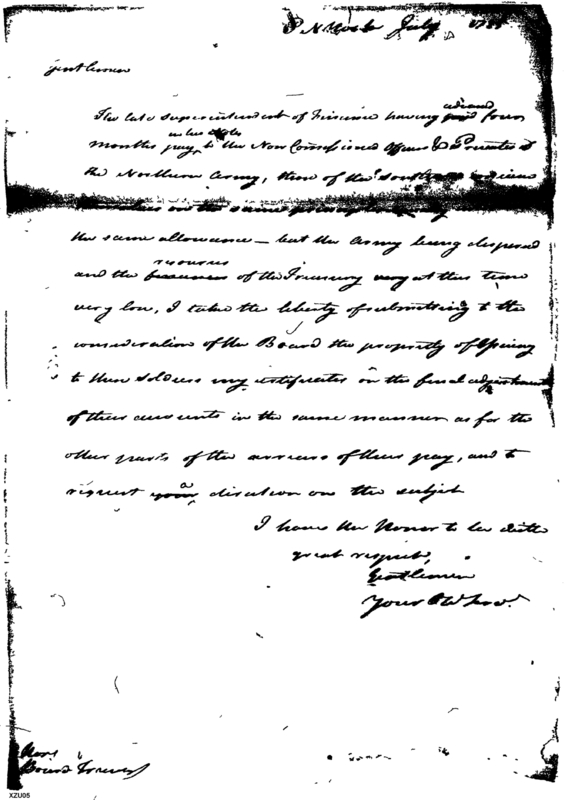 July 1785
Gentlemen
advanced
The late Superintendent of Finance having paid four
in his Notes
months pay to the Non Commissioned Officers & Privates of
the Northern Army, those of the Southern
on the same principles
the same allowance — but the Army being dispersed
resources
and the of the Treasury very at this time
very low, I take the liberty of submitting to the
consideration of the Board the propriety of issuing
to these Soldiers my certificates on the final adjustment
of their accounts in the same manner as for the
other parts of the arrears of their pay, and to
a
request your direction on the subject
I have the Honor to be with
great respect,
Gentlemen
Your
Board Treasury
XZU05